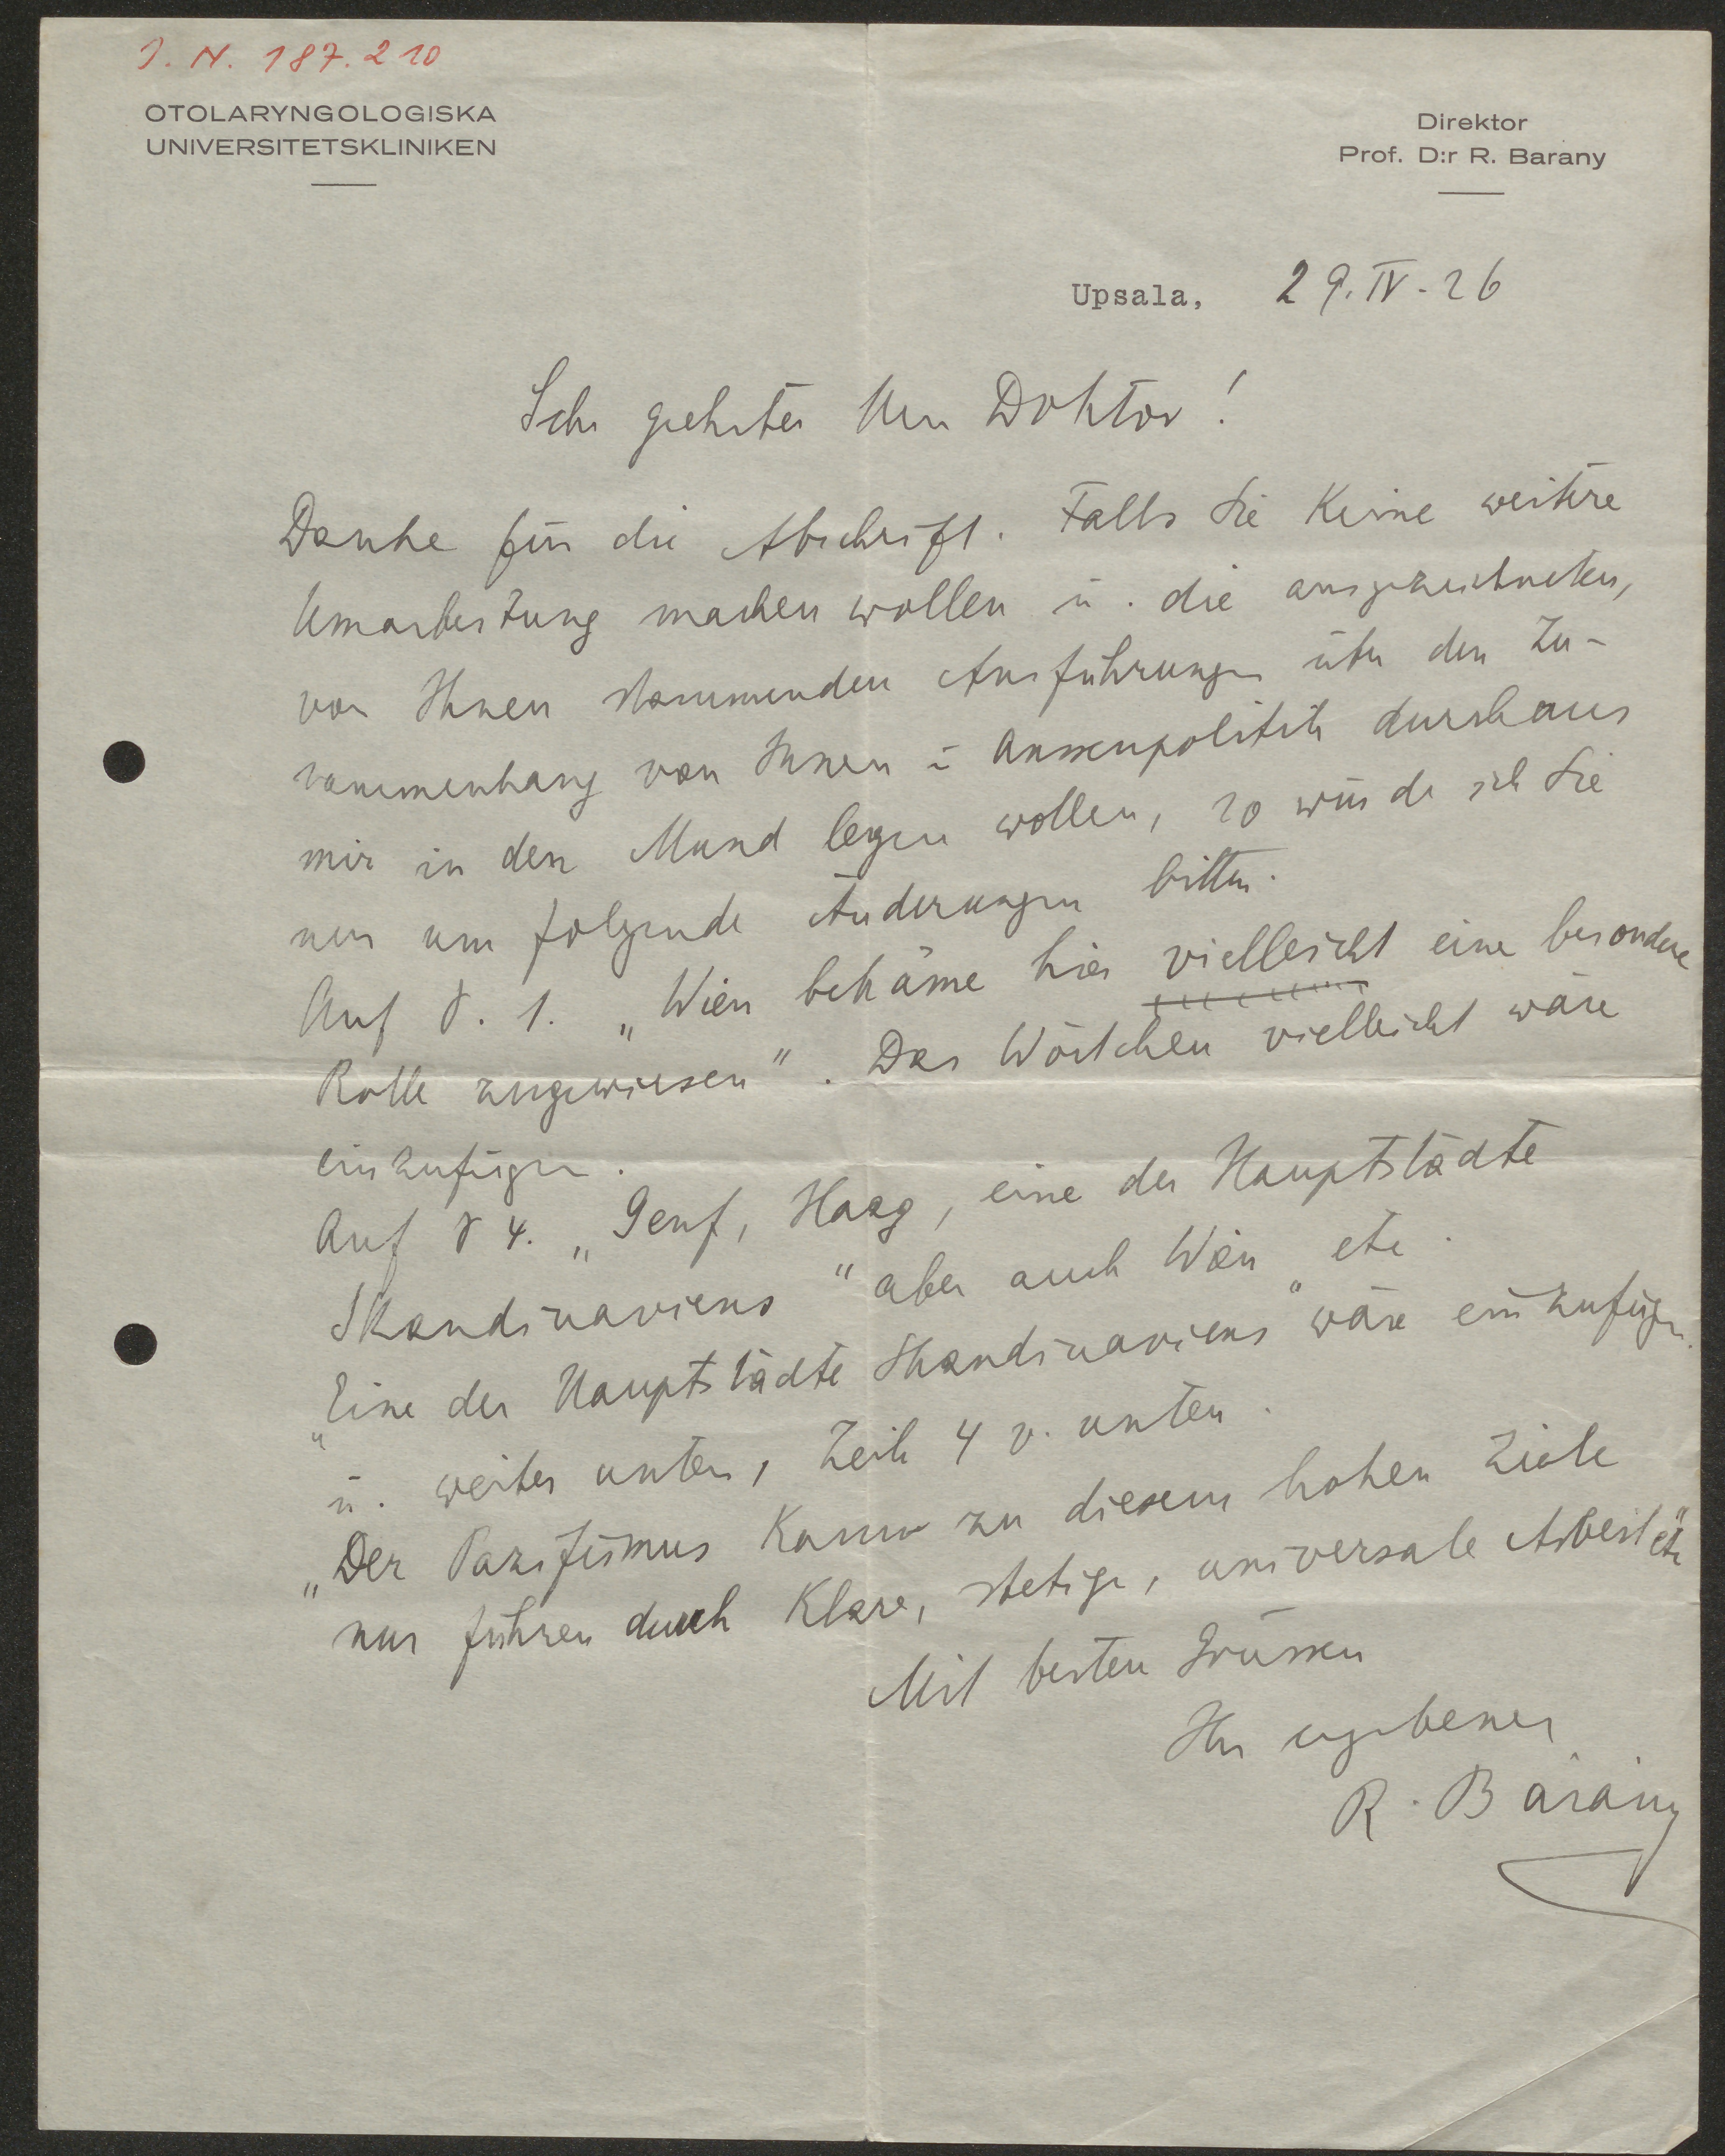 I. N. 187.210
OTOLARYNGOLOGISKA
UNIVERSITETSKLINIKEN
Direktor
Prof. D:r R. Barany
Upsala, 29. IV - 26
Sehr geehrter Herr Doktor!
Danke für die Abschrift. Falls Sie keine weitere
Umarbeitung machen wollen u. die ausgezeichneten,
von Ihnen stammenden Ausführungen über den Zu-
sammenhang von Innen u Aussenpolitik durchaus
mir in den Mund legen wollen, so würde ich Sie
nur um folgende Änderungen bitten.
Auf S. 1. „Wien bekäme hier vielleicht eine besondere
Rolle zugewiesen". Das Wörtchen vielleicht wäre
einzufügen.
Auf S 4. „Genf, Haag, eine der Hauptstädte
Skandinaviens" aber auch Wien etc.
„Eine der Hauptstädte Skandinaviens" wäre einzufügen.
u. weiter unten, Zeile 4 v. unten.
„Der Pazifismus kann zu diesem hohen Ziele
nur führen durch klare, stetige, universale Arbeit" etc
Mit besten Grüssen
Ihr ergebener
R. Bárány